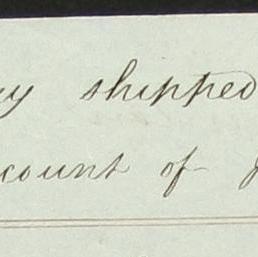 y shipped
count of